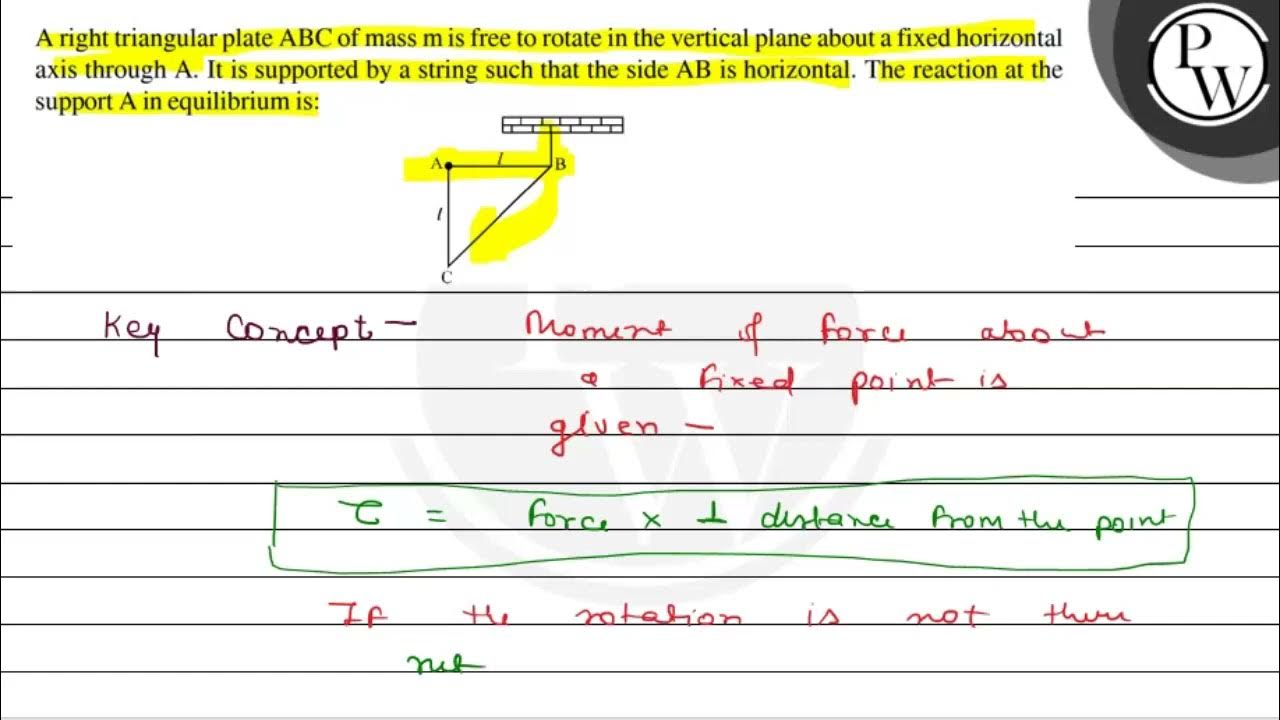 A right triangular plate ABC of mass m is free to rotate in the vertical plane about a fixed horizontal
axis through A. It is supported by a string such that the side AB is horizontal. The reaction at the
support A in equilibrium is:
P
W
A l B
l
C
Key Concept – Moment of force about
a fixed point is
given –
τ = force × ⊥ distance from the point
If the rotation is not there
net